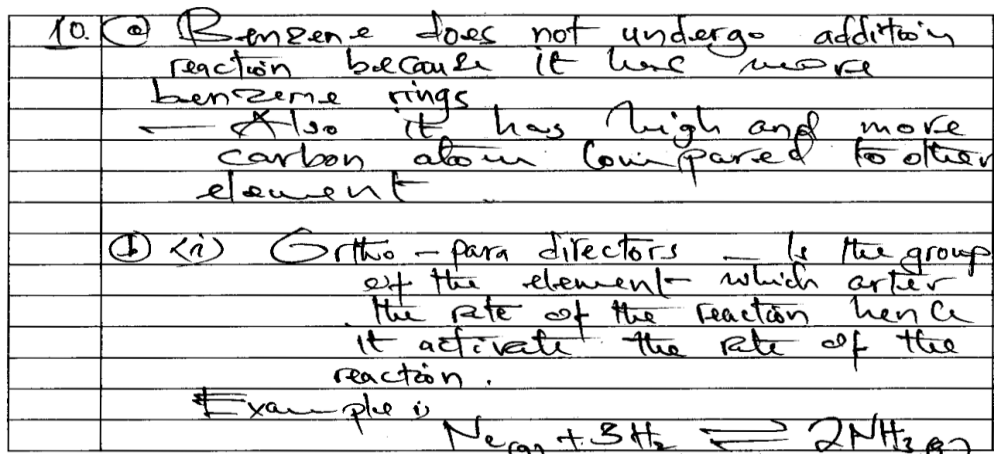 10. (a) Benzene does not undergo addition
reaction because it has more
benzene rings
— Also it has high and more
carbon atom compared to other
element.
(b) (i) Ortho - para directors — Is the group
of the element which arter
the rate of the reaction hence
it activate the rate of the
reaction.
Example is
N2(g) + 3H2 ⇌ 2NH3(g)